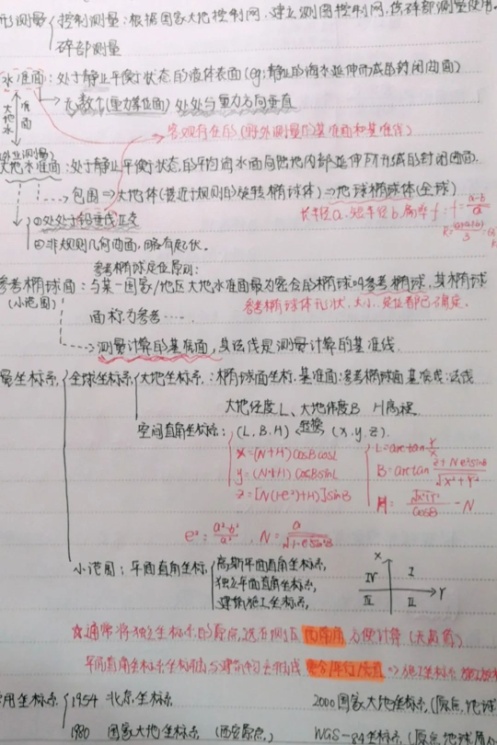 形测量 控制测量：根据国家大地控制网，建立测图控制网，供碎部测量使用
碎部测量
水准面：处于静止平衡状态的液体表面(eg:静止的海水延伸而成的封闭曲面)
→无数个(重力等位面) 处处与重力方向垂直
大地水准面
客观存在的(野外测量的基准面和基准线)
大地水准面：处于静止平衡状态的平均海水面向陆地内部延伸所形成的封闭曲面.
→包围⇒大地体(接近于规则的旋转椭球体)⇒地球椭球体(全球)
长半径a、短半径b、扁率f：f=(a-b)/a
①处处与铅垂线正交
②非规则几何曲面，略有起伏。
参考椭球定位原则：
参考椭球面：与某一国家/地区大地水准面最为密合的椭球叫参考椭球，其椭球
(小范围)
参考椭球体形状、大小、定位都已确定.
面称为参考……
→测量计算的基准面，其法线是测量计算的基准线.
量坐标系 全球坐标系 大地坐标系：椭球面坐标. 基准面：参考椭球面 基准线：法线
大地经度L、大地纬度B H高程
空间直角坐标系：(L.B.H) 转换 (X.Y.Z).
x=(N+H)cosBcosL
L=arctan y/x
y=(N+H)cosBsinL
B=arctan (z+Ne²sinB)/√(x²+y²)
z=[N(1-e²)+H]sinB
H=√(x²+y²)/cosB -N
e²=(a²-b²)/a², N=a/√(1-e²sin²B)
小范围：平面直角坐标系 高斯平面直角坐标系，
独立平面直角坐标系，
建筑施工坐标系，
X
IV I
Y
III II
☆通常将独立坐标系的原点，选在测区西南角，方便计算(无负值)
常用坐标系 1954 北京坐标系 2000国家大地坐标系，(原点，地球
1980 国家大地坐标系 (西安原点) WGS-84坐标系 (原点，地球质心